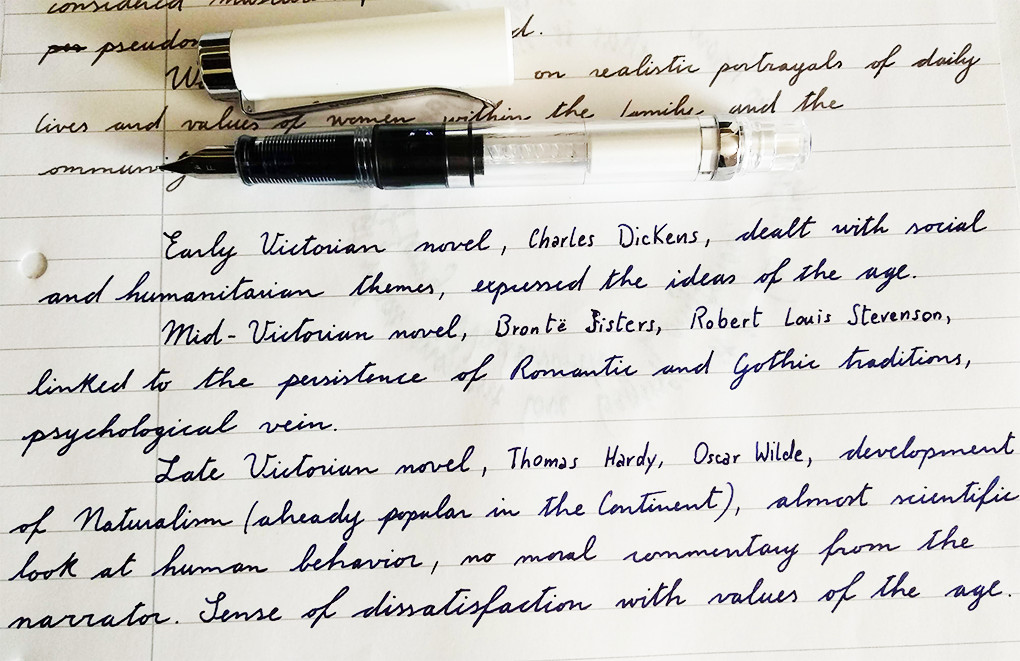 considered
pseudon d.
W on realistic portrayals of daily
lives and values of women within the family and the
ommunity
Early Victorian novel, Charles Dickens, dealt with social
and humanitarian themes, expressed the ideas of the age.
Mid-Victorian novel, Brontë Sisters, Robert Louis Stevenson,
linked to the persistence of Romantic and Gothic traditions,
psychological vein.
Late Victorian novel, Thomas Hardy, Oscar Wilde, development
of Naturalism (already popular in the Continent), almost scientific
look at human behavior, no moral commentary from the
narrator. Sense of dissatisfaction with values of the age.